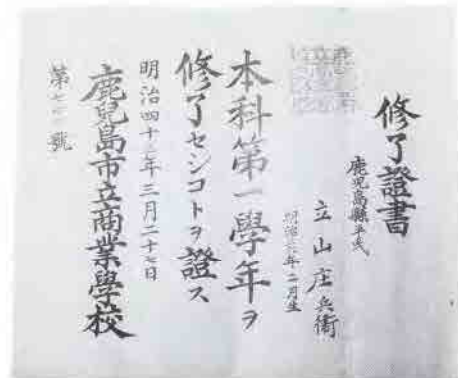 修了證書
鹿児島縣平民
立山庄兵衛
年二月生
本科第一學年ヲ
修了セシコトヲ證ス
明治四十三年三月二十七日
鹿兒島市立商業學校
第 號